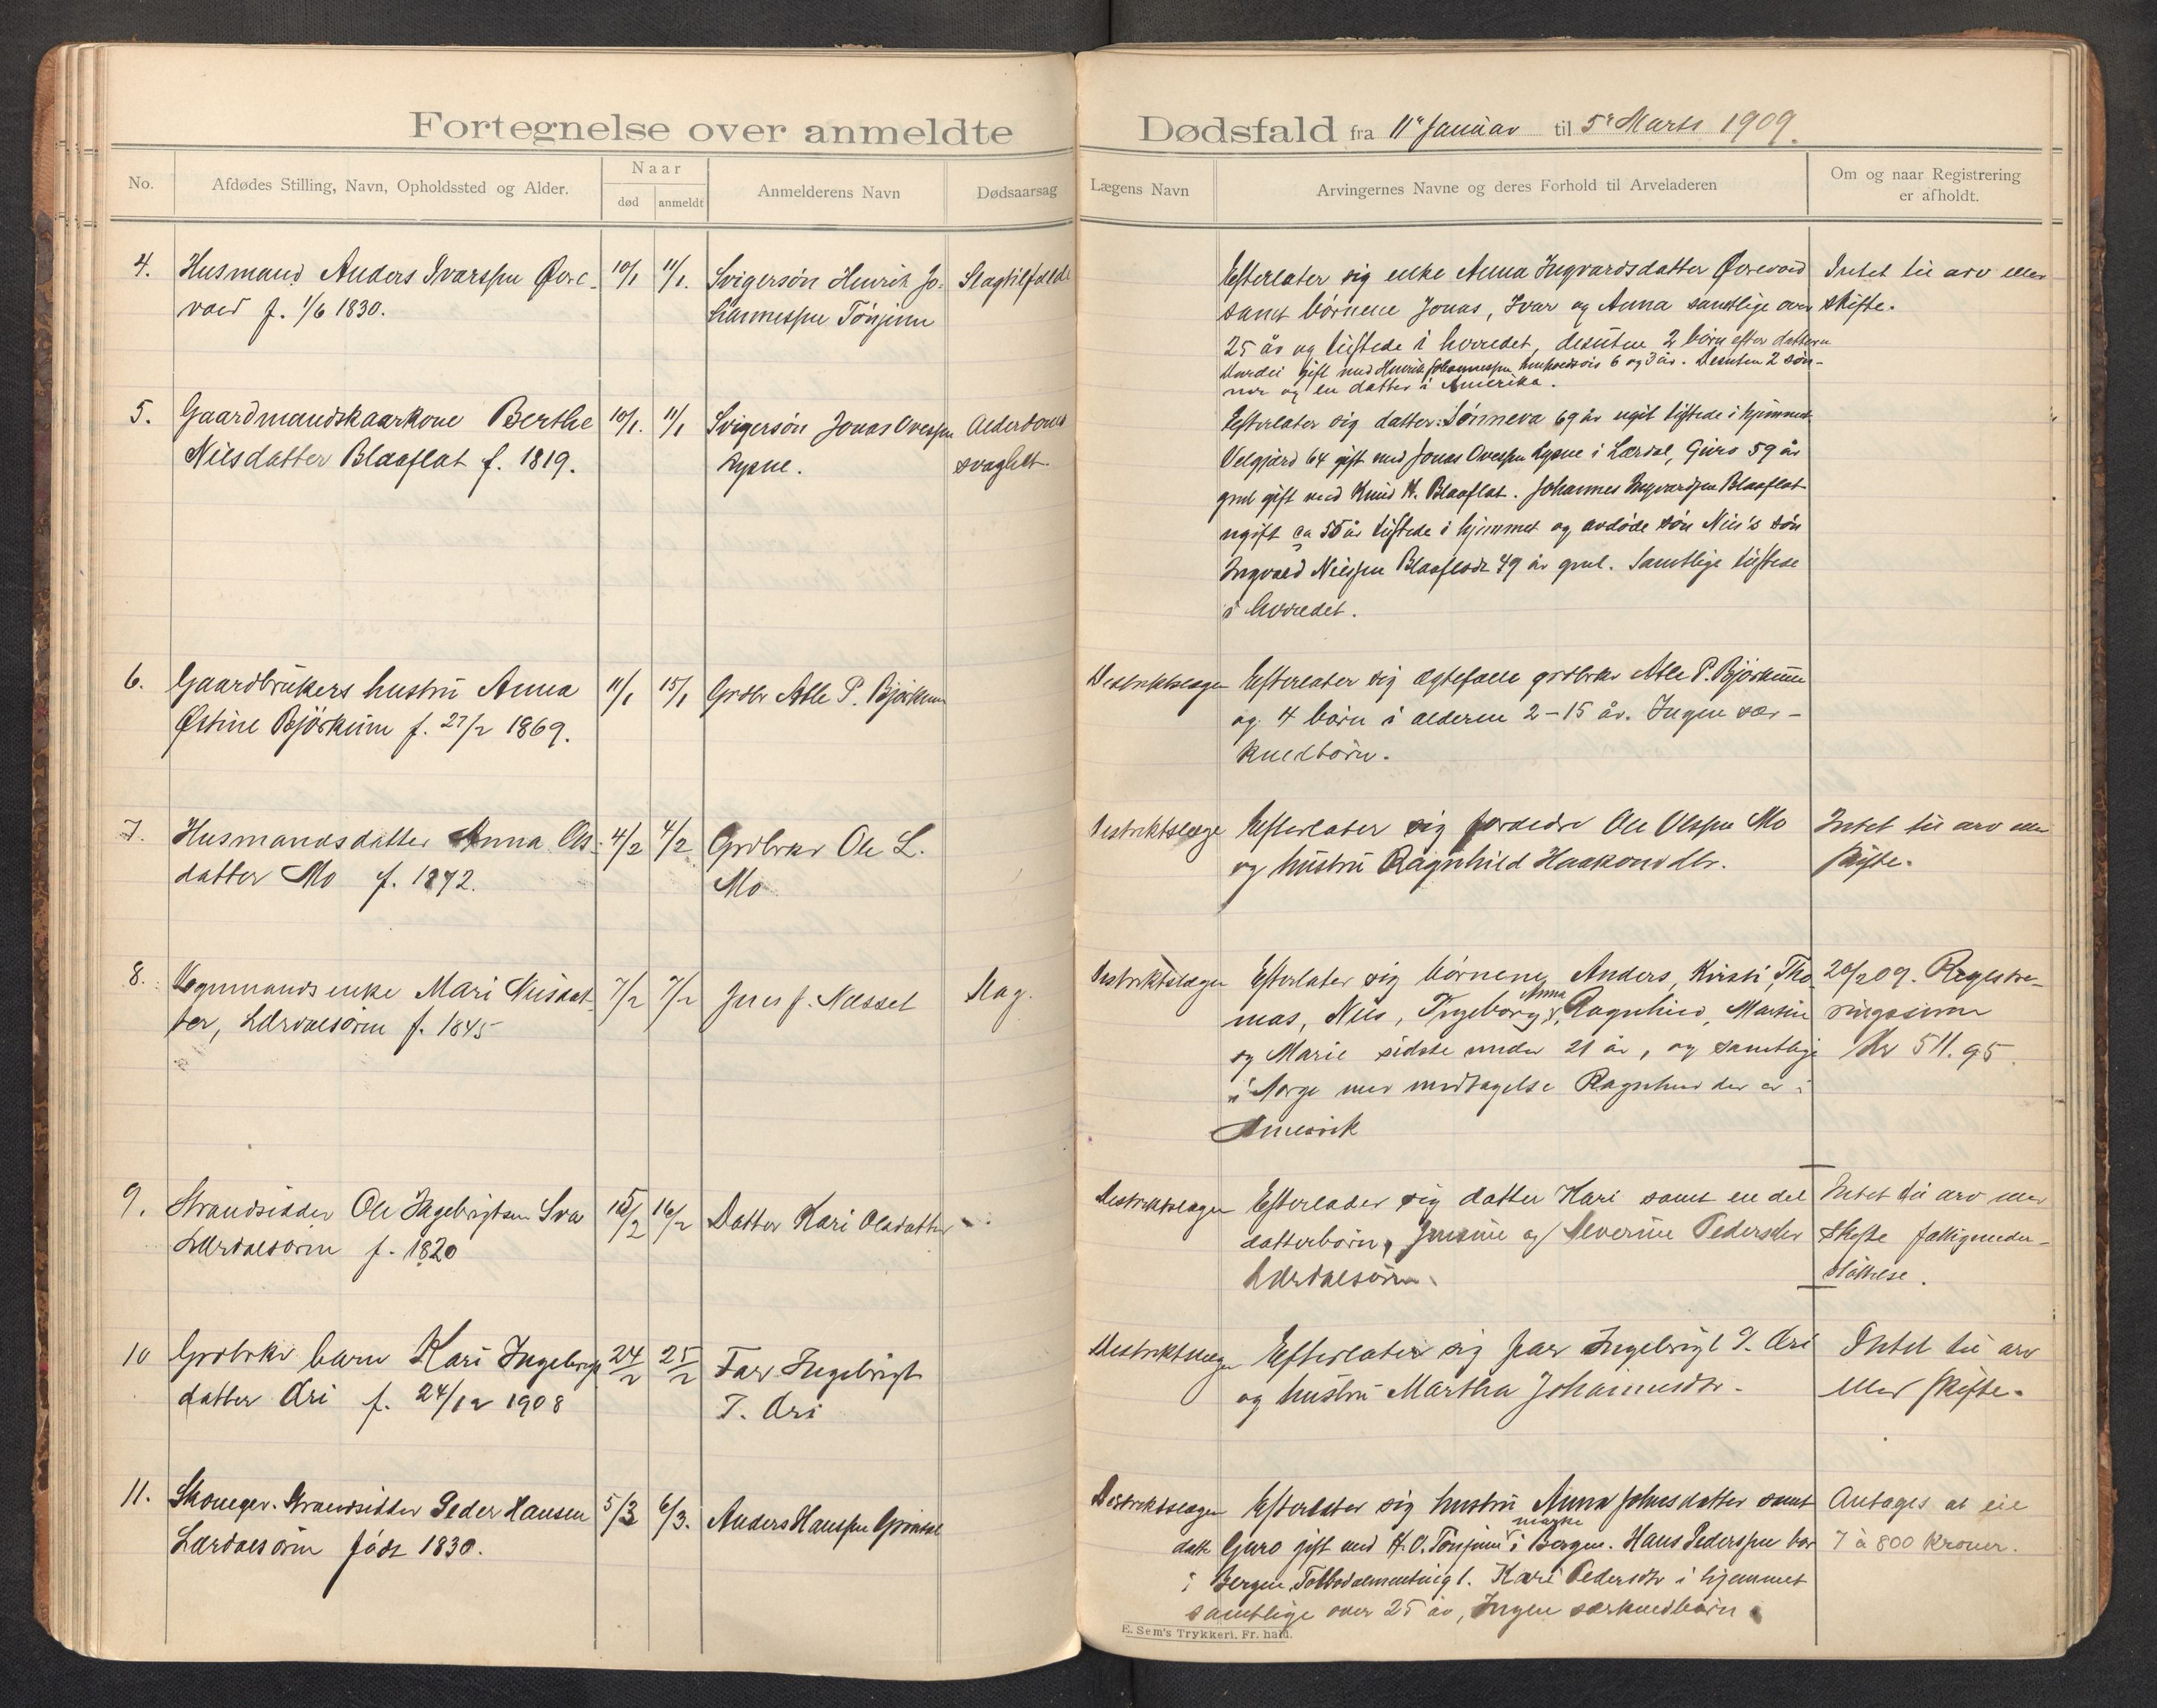 Fortegnelse over anmeldte Dødsfald fra 11te Januar til 5te Marts 1909.
No.
Afdødes Stilling, Navn, Opholdssted og Alder.
Naar
død
anmeldt
Anmelderens Navn
Dødsaarsag
Lægens Navn
Arvingernes Navne og deres Forhold til Arveladeren
Om og naar Registrering
er afholdt.
4.
Husmand Anders Ivarssen Øvre-
vold f. 1/6 1830.
10/1
11/1.
Svigersøn Henrik Jo-
hannessen Tønjum
Slagtilfælde
Efterlater sig enke Anna Ingvardsdatter Ørevold
samt børnene Jonas, Ivar og Anna samtlige over
25 år og bistede i herredet, desuten 2 børn efter datteren
Durdei gift med Henrik Johannessen henholdsvis 6 og 3 år. Desuten 2 søn-
ner og en datter i Amerika.
Intet til arv eller
skifte.
5.
Gaardmandskaarkone Berthe
Nilsdatter Blaaflat f. 1819.
10/1.
11/1
Svigersøn Jonas Ovessen
Lysne.
Alderdoms
svaghet
Efterlater sig datter: Sønneva 69 år ugift bistede i hjemmet
Velgjerd 64 gift med Jonas Ovessen Lysne i Lærdal, Guro 59 år
gml gift med Knud H. Blaaflat. Johannes Ingvardsen Blaaflat
ugift ca 55 år bistede i hjemmet og avdøde søn Nils's søn
Ingvald Nilssen Blaaflat 49 år gml. Samtlige bistede
i herredet.
6.
Gaardbrukers hustru Anna
Østine Bjørkum f. 27/2 1869.
11/1
15/1
Grdbr Atle P. Bjørkum
Destriktslægen
Efterlater sig ægtefælle grdbrkr Atle P. Bjørkum
og 4 børn i alderen 2-15 år. Ingen sær-
kuldbørn.
7.
Husmandsdatter Anna Ols-
datter Mo f. 1872.
4/2
4/2
Grdbrkr Ole L.
Mo
Destriktslæge
Efterlater sig forældre Ole Olssen Mo
og hustru Ragnhild Haakonsdtr.
Intet til arv eller
skifte.
8.
Vognmands enke Mari Nilsdat-
ter, Lærdalsøren f. 1845
7/2
7/2
Jens J. Nesset
Slag.
Destriktslægen
Efterlater sig børnene Anders, Kirsti, Tho-
mas, Nils, Ingeborg, Anna, Ragnhild, Martin
og Marie sidste under 21 år, og samtlige
i Norge med undtagelse Ragnhild der er i
Amerik
20/2 09. Registre-
ringssum
Kr 511.95
9.
Strandsidder Ole Ingebrigtsen Sva
Lærdalsøren f. 1820
15/2
16/2
Datter Kari Olsdatter
Destriktslægen
Efterlader sig datter Kari samt en del
datterbørn, Jensine og Severine Pedersdtr
Lærdalsøren
Intet til arv eller
skifte fattigunder-
støttelse.
10
Grdbrkr barn Kari Ingebrigt
datter Æri f. 24/12 1908
24/2
25/2
Far Ingebrigt
T. Æri
Destriktslægen
Efterlater sig far Ingebrigt T. Æri
og hustru Martha Johannesdtr.
Intet til arv
eller skifte.
11.
Skomager. Strandsidder Peder Hansen
Lærdalsøren født 1830.
5/3
6/3.
Anders Hanssen Grøndal
Destriktslægen
Efterlater sig hustru Anna Johnsdatter samt
datter Guro gift med H.O. Tønjum i Bergen. Hans Pederssen bor
i Bergen, Tolbodalmenting 1. Kari Pedersdtr i hjemmet
samtlige over 25 år, Ingen særkuldbørn
Antages at eie
7 à 800 Kroner.
E. Sem's Trykkeri. Fr.hald.